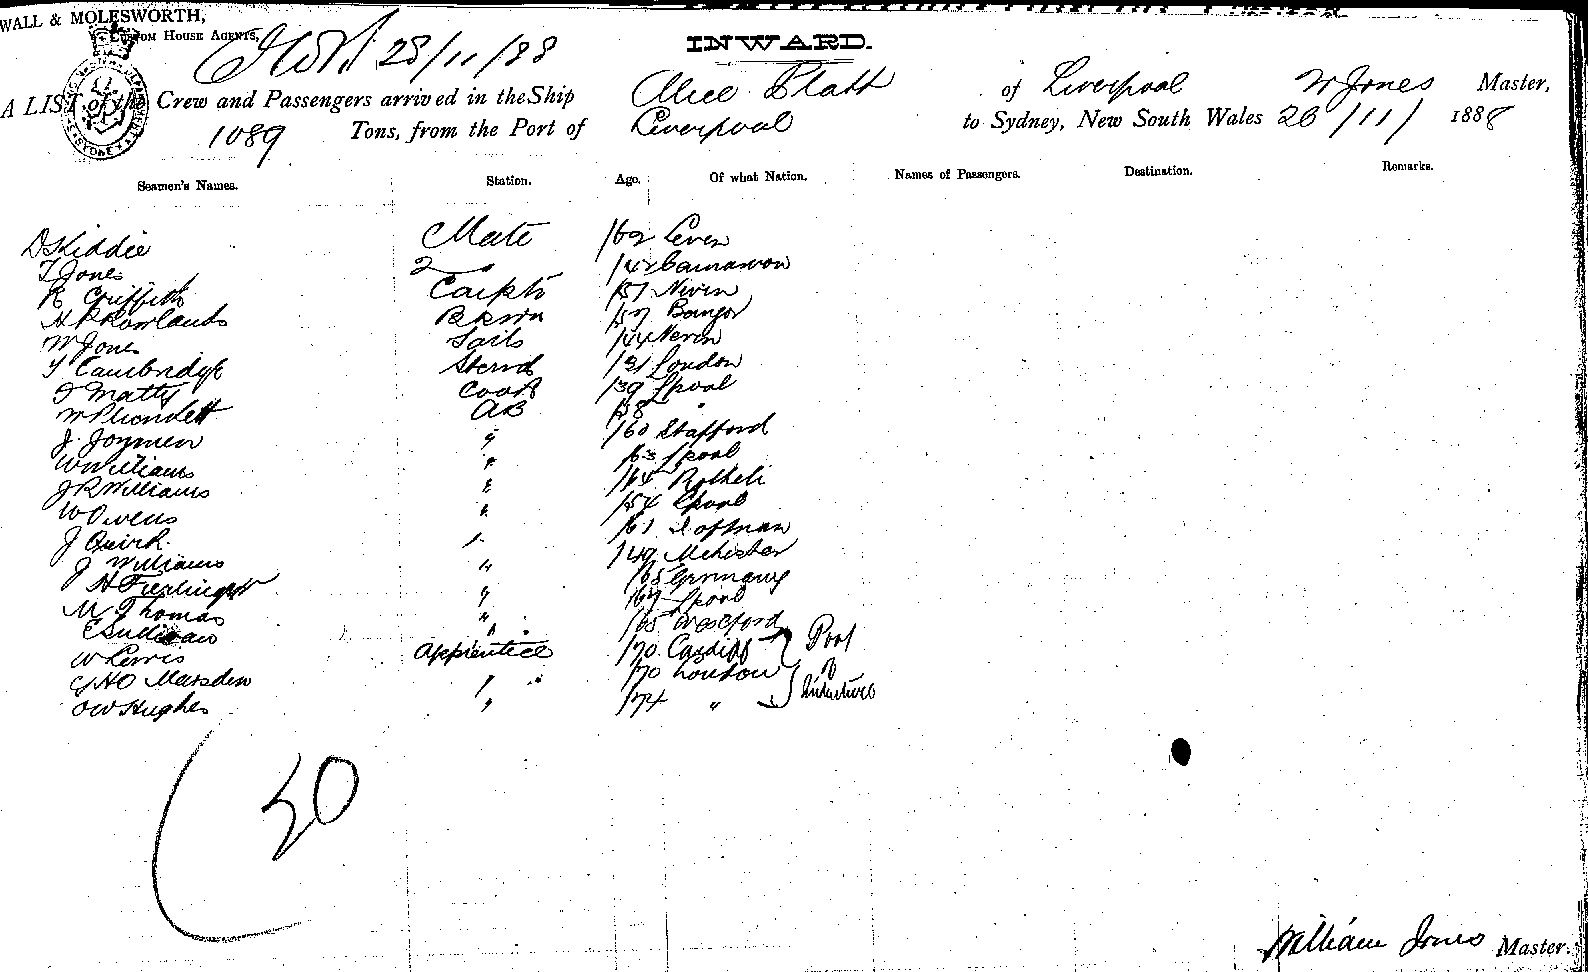 WALL & MOLESWORTH,
Custom House Agents,
28/11/88
INWARD.
A LIST of the Crew and Passengers arrived in the Ship Alice Platt of Liverpool W Jones Master,
1089 Tons, from the Port of Liverpool to Sydney, New South Wales 26/11/ 1888
Seamen's Names. Station. Age. Of what Nation. Names of Passengers. Destination. Remarks.
D Kiddie Mate /62 Leven
T Jones 2 " /42 Carnarvon
R Griffith /57 Nevin
H R Rowlands /57 Bangor
W Jones Sails /44 Nevin
T Cambridge Steward /21 London
J Matty Cook /39 Lpool
W AB /38 "
J. Joymen " /60 Stafford
W Williams " /63 Lpool
J R Williams " /64
W Owens " /54 Lpool
J Quirk " /61
J Williams " /49 Mchester
H " /65 Germany
M Thomas " /67 Lpool
C Sullivan " /65 Wexford
W Lewis Apprentice /70 Cardiff
G H O Marsden " /70 London
O W Hughes " /74 "
Port
of
Indenture
20
William Jones Master.